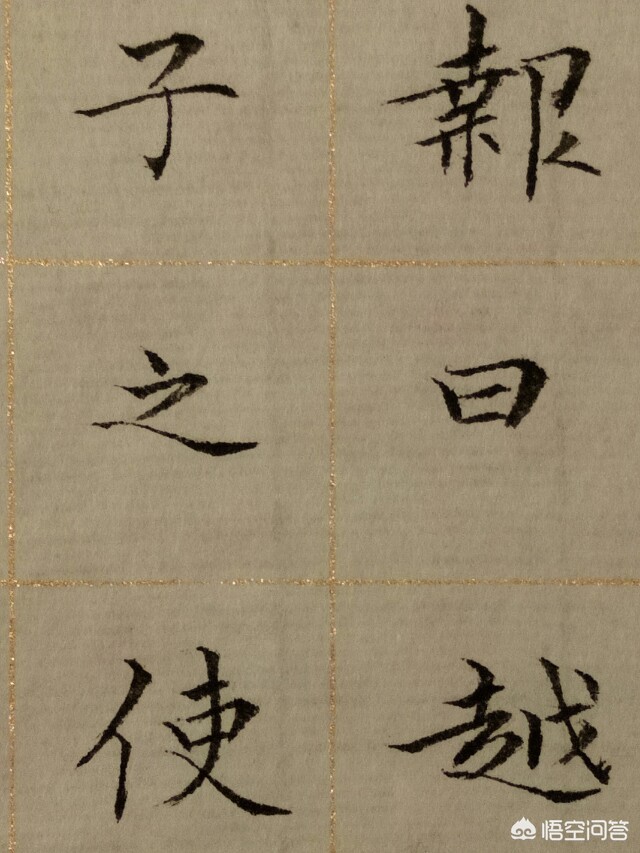 報曰越
子之使
悟空问答